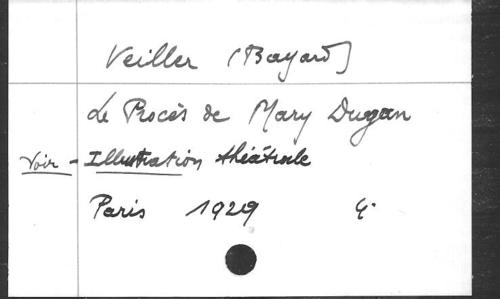 Veiller (Bayard)
Le Procès de Mary Dugan
Voir - Illustration théâtrale
Paris 1929 4°